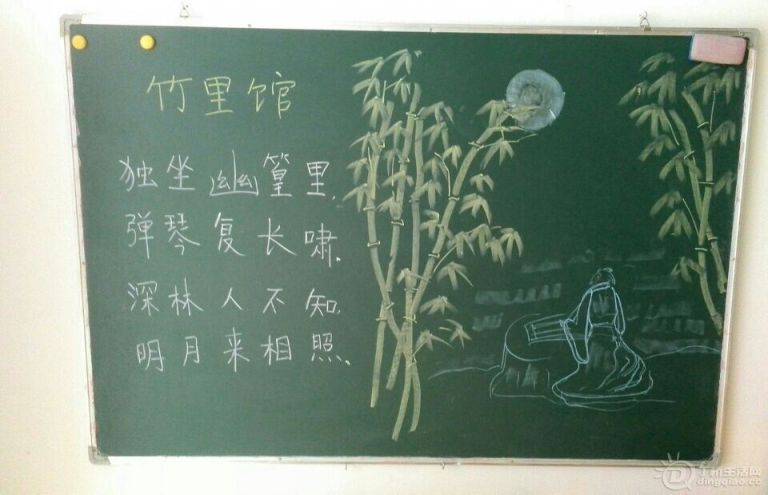 竹里馆
独坐幽篁里.
弹琴复长啸.
深林人不知.
明月来相照.
生活网
dingqiao.cc